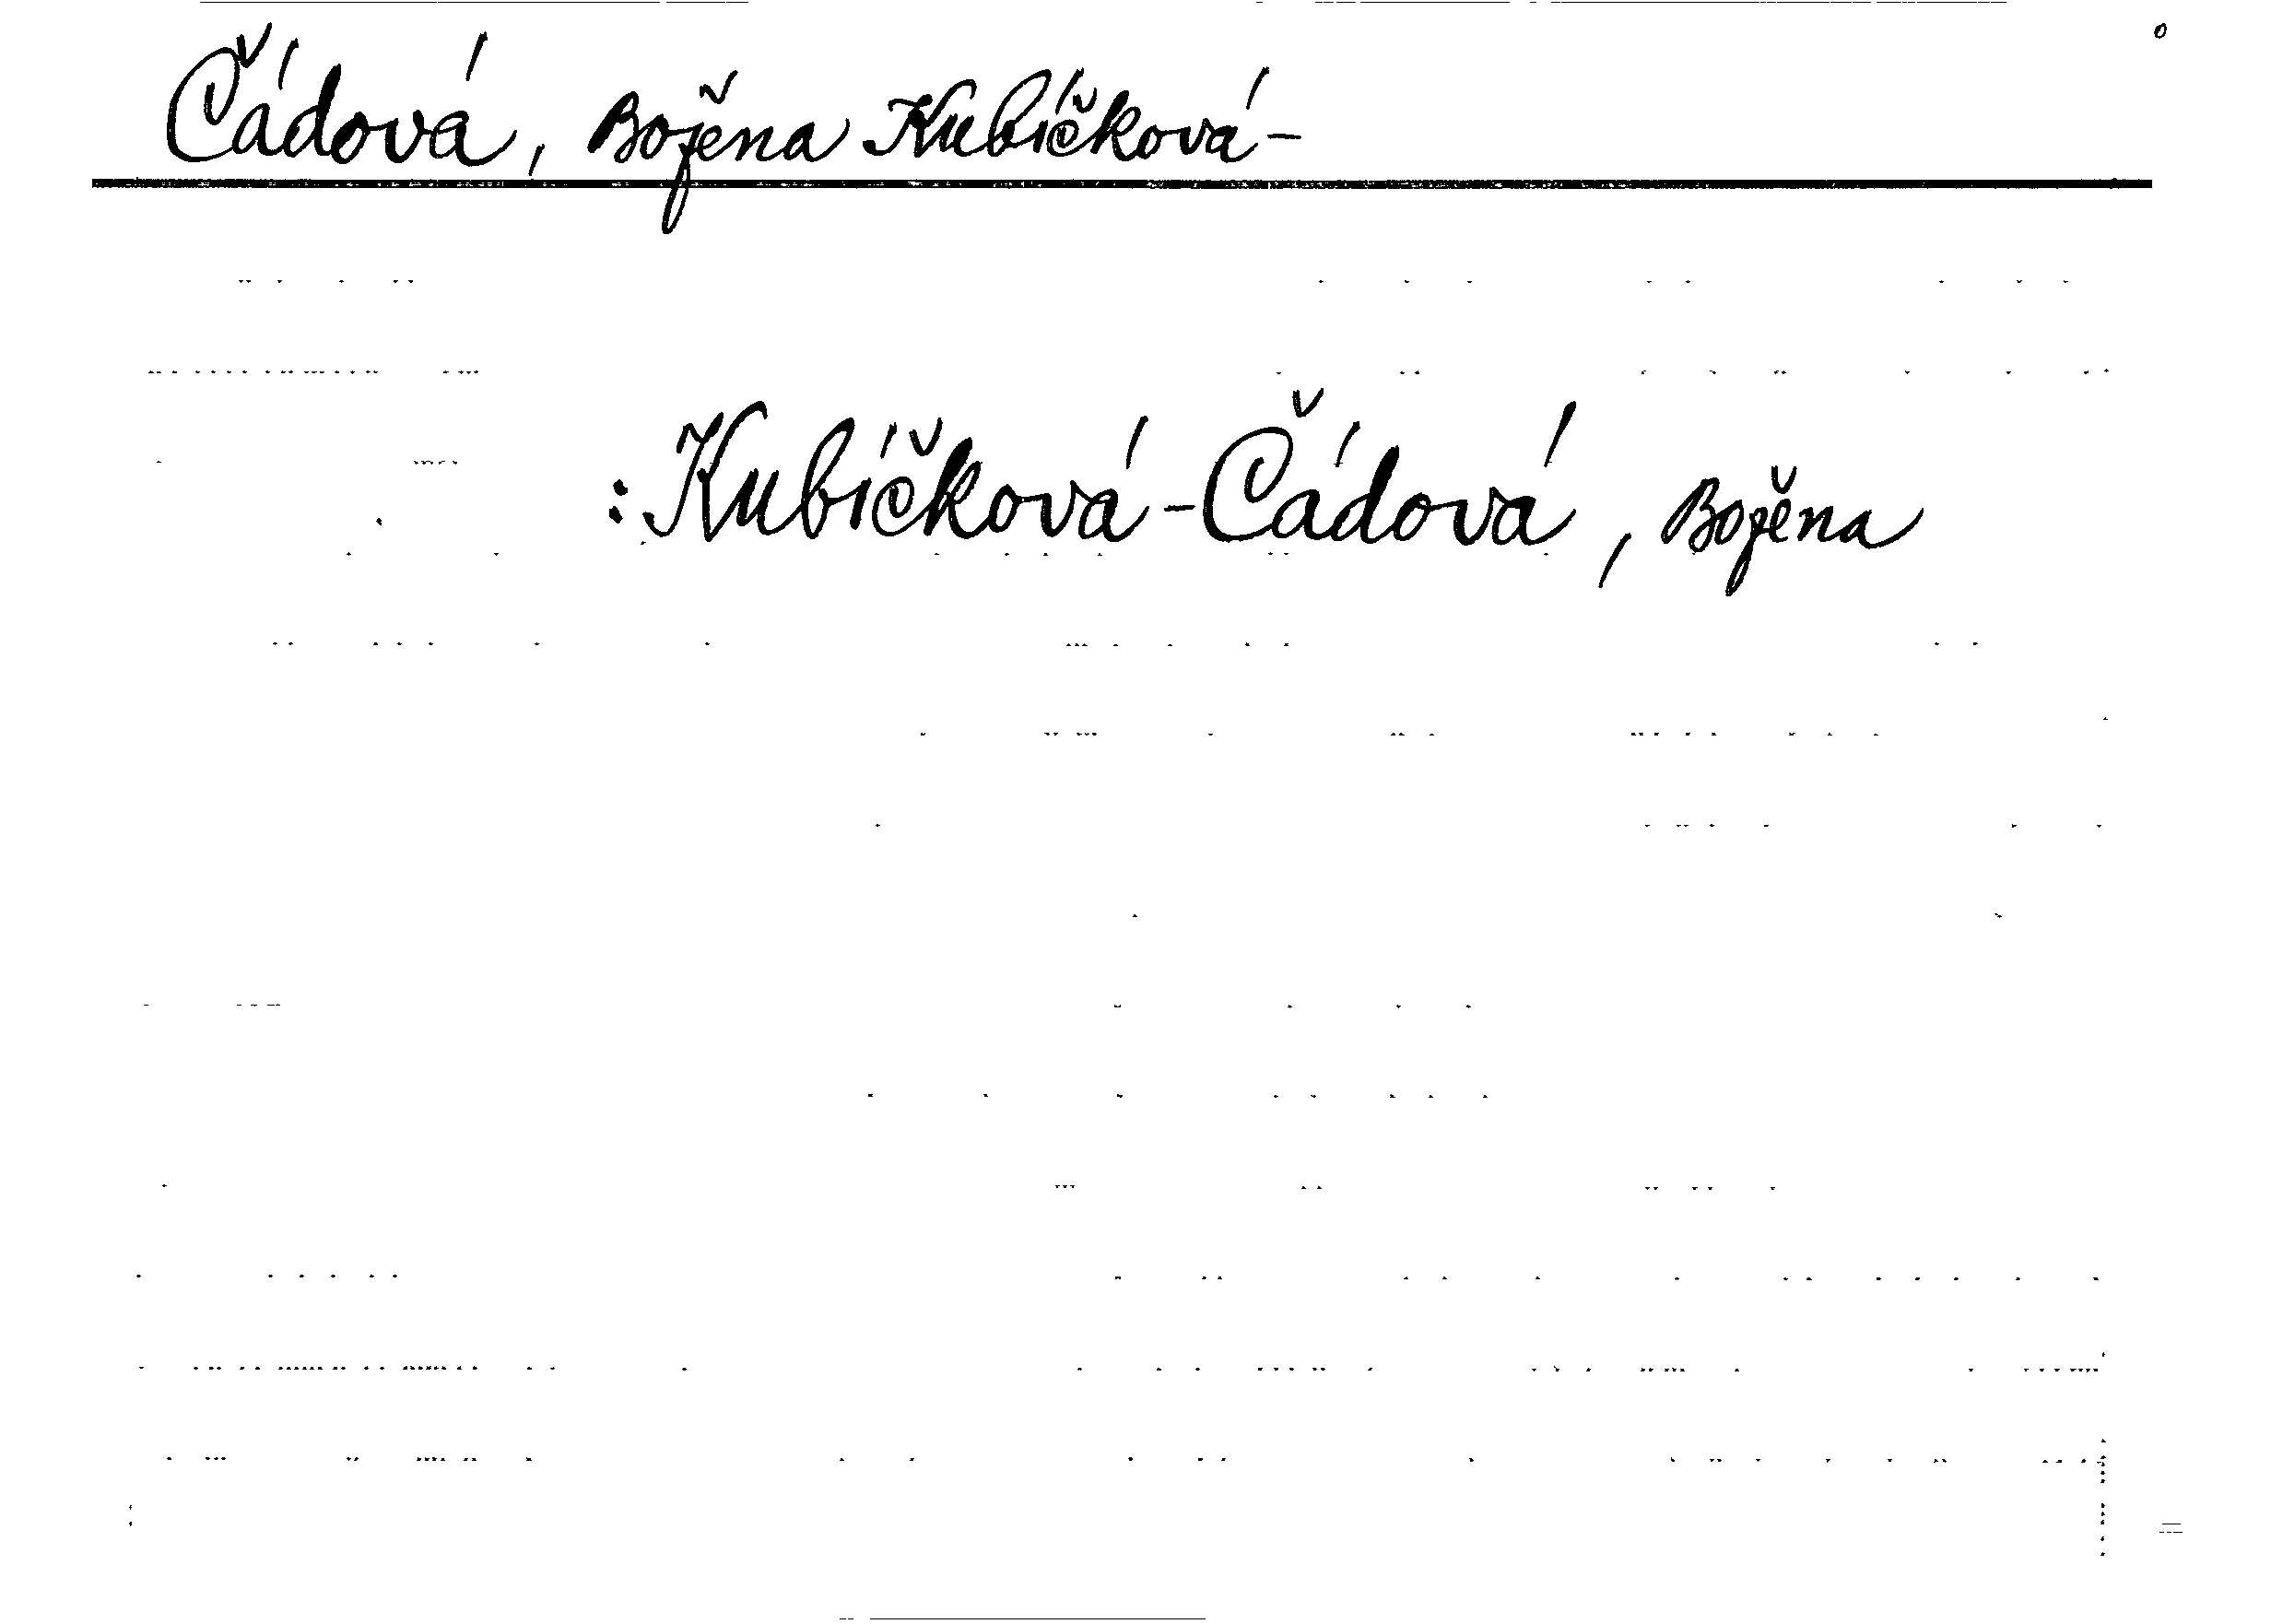 Čádová, Božena Kubíčková-
:Kubíčková-Čádová, Božena